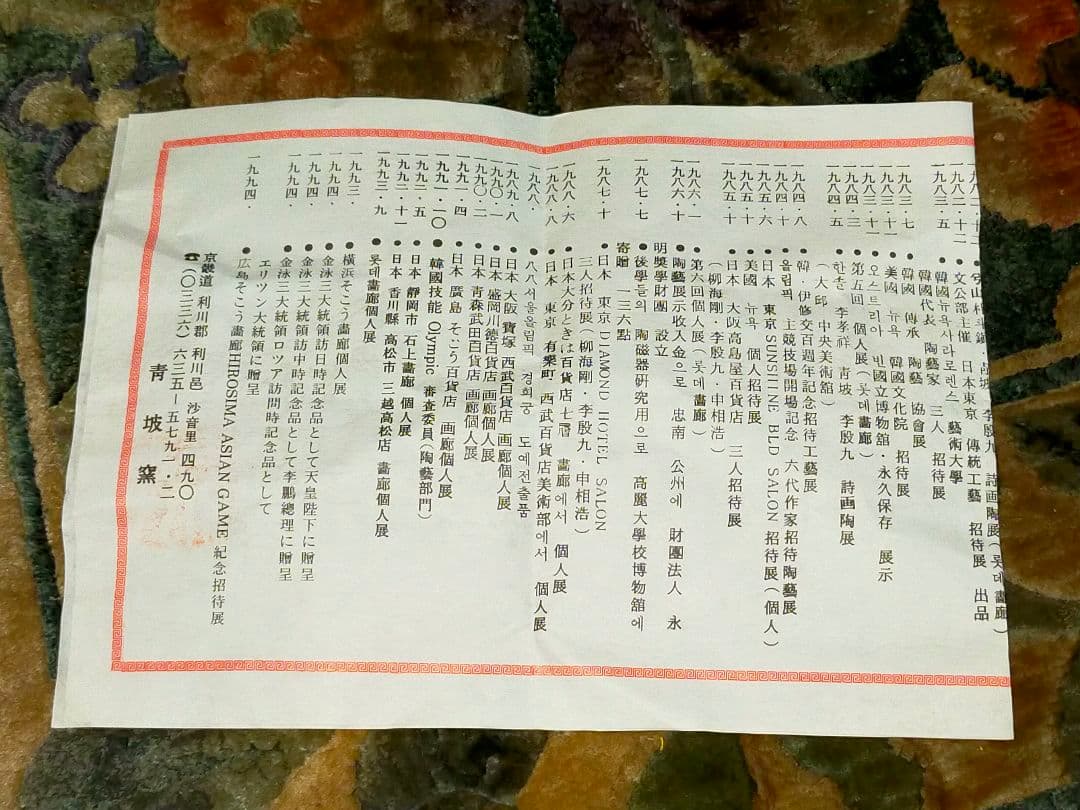 李殷九 詩画陶展(롯데畵廊)
一九八二・十二 ● 文公部主催 日本東京 傳統工藝 招待展 出品
一九八三・五 ● 韓國뉴욕사라로렌스 藝術大學
韓國代表 陶藝家 三人 招待展
一九八三・七 ● 韓國 傳承 陶藝 協會展
● 美國 뉴욕 韓國文化院 招待展
一九八三・十一 ● 오스트리아 빈國立博物館・永久保存 展示
一九八四・三 ● 第五回 個人展(롯데畵廊)
一九八四・五 ● 한솔 李孝祥 靑坡 李殷九 詩画陶展
(大邱 中央美術館)
一九八四・八 ● 韓・伊修交百週年記念招待工藝展
一九八四・十 ● 올림픽 主競技場開場記念 六代作家招待陶藝展
一九八五・六 ● 日本 東京 SUNSHINE BLD SALON 招待展(個人)
一九八五・十 ● 美國 뉴욕 個人招待展
一九八五・十 ● 日本 大阪高島屋百貨店 三人招待展
(柳海剛・李殷九・申相浩)
一九八六・一 ● 第六回個人展(롯데畵廊)
一九八六・十 ● 陶藝展示收入金으로 忠南 公州에 財團法人 永
明奬學財團 設立
一九八七・七 ● 後學들의 陶磁器硏究用으로 高麗大學校博物舘에
寄贈 一三六點
一九八七・十 ● 日本 東京 DIAMOND HOTEL SALON
三人招待展(柳海剛・李殷九・申相浩)
一九八八・六 ● 日本大分ときは百貨店 七層 畵廊에서 個人展
一九八八・八 ● 日本 東京 有樂町 西武百貨店美術部에서 個人展
一九八八・ ● 八八서울올림픽 경희궁 도예전출품
一九八九・八 ● 日本 大阪 寶塚 西武百貨店 画廊個人展
一九九〇・一 ● 日本 盛岡川德百貨店 画廊個人展
一九九〇・二 ● 日本 青森武田百貨店 画廊個人展
一九九一・四 ● 日本 廣島 そごう百貨店 画廊個人展
一九九一・一〇 ● 韓國技能 Olympic 審査委員(陶藝部門)
一九九二・五 ● 日本 靜岡市 石上畵廊 個人展
一九九二・十一 ● 日本 香川縣 高松市 三越高松店 畵廊個人展
一九九三・九 ● 롯데畵廊個人展
一九九三・ ● 橫浜そごう畵廊個人展
一九九四・ ● 金泳三大統領訪日時記念品として天皇陛下に贈呈
一九九四・ ● 金泳三大統領訪中時記念品として李鵬總理に贈呈
一九九四・ ● 金泳三大統領ロツア訪問時記念品として
エリツン大統領に贈呈
一九九四・ ● 広島そごう畵廊HIROSIMA ASIAN GAME 紀念招待展
京畿道 利川郡 利川邑 沙音里 四九〇
☎(〇三三六)六三五ー五七九一・二
靑坡窯